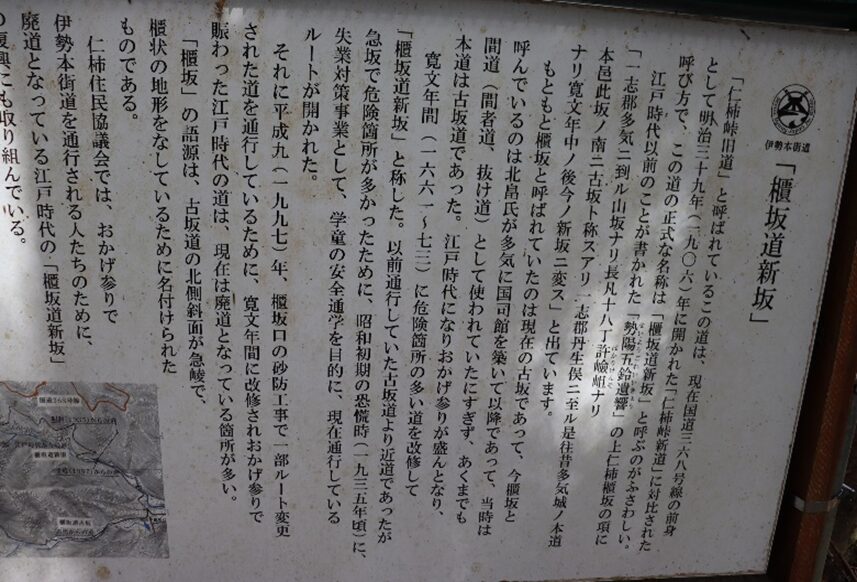 伊勢本街道
「櫃坂道新坂」
「仁柿峠旧道」と呼ばれているこの道は、現在国道三六八号線の前身
として明治三十九年（一九〇六）年に開かれた「仁柿峠新道」に対比された
呼び方で、この道の正式な名称は「櫃坂道新坂」と呼ぶのがふさわしい。
江戸時代以前のことが書かれた「勢陽五鈴遺響」の上仁柿櫃坂の項に
「一志郡多気ニ到ル山坂ナリ長凡十八丁許嶮岨ナリ
本邑此坂ノ南ニ古坂ト称スアリ一志郡丹生俣ニ至ル是往昔多気城ノ本道
ナリ寛文年中ノ後今ノ新坂ニ変ス」と出ています。
もともと櫃坂と呼ばれていたのは現在の古坂であって、今櫃坂と
呼んでいるのは北畠氏が多気に国司館を築いて以降であって、当時は
間道（間者道、抜け道）として使われていたにすぎず、あくまでも
本道は古坂道であった。江戸時代になりおかげ参りが盛んとなり、
寛文年間（一六六一～七三）に危険箇所の多い道を改修して
「櫃坂道新坂」と称した。以前通行していた古坂道より近道であったが
急坂で危険箇所が多かったために、昭和初期の恐慌時（一九三五年頃）に、
失業対策事業として、学童の安全通学を目的に、現在通行している
ルートが開かれた。
それに平成九（一九九七）年、櫃坂口の砂防工事で一部ルート変更
された道を通行しているために、寛文年間に改修されおかげ参りで
賑わった江戸時代の道は、現在は廃道となっている箇所が多い。
「櫃坂」の語源は、古坂道の北側斜面が急峻で、
櫃状の地形をなしているために名付けられた
ものである。
仁柿住民協議会では、おかげ参りで
伊勢本街道を通行される人たちのために、
廃道となっている江戸時代の「櫃坂道新坂」
の復興にも取り組んでいる。
国道368号線
櫃坂道新坂
櫃坂道古坂